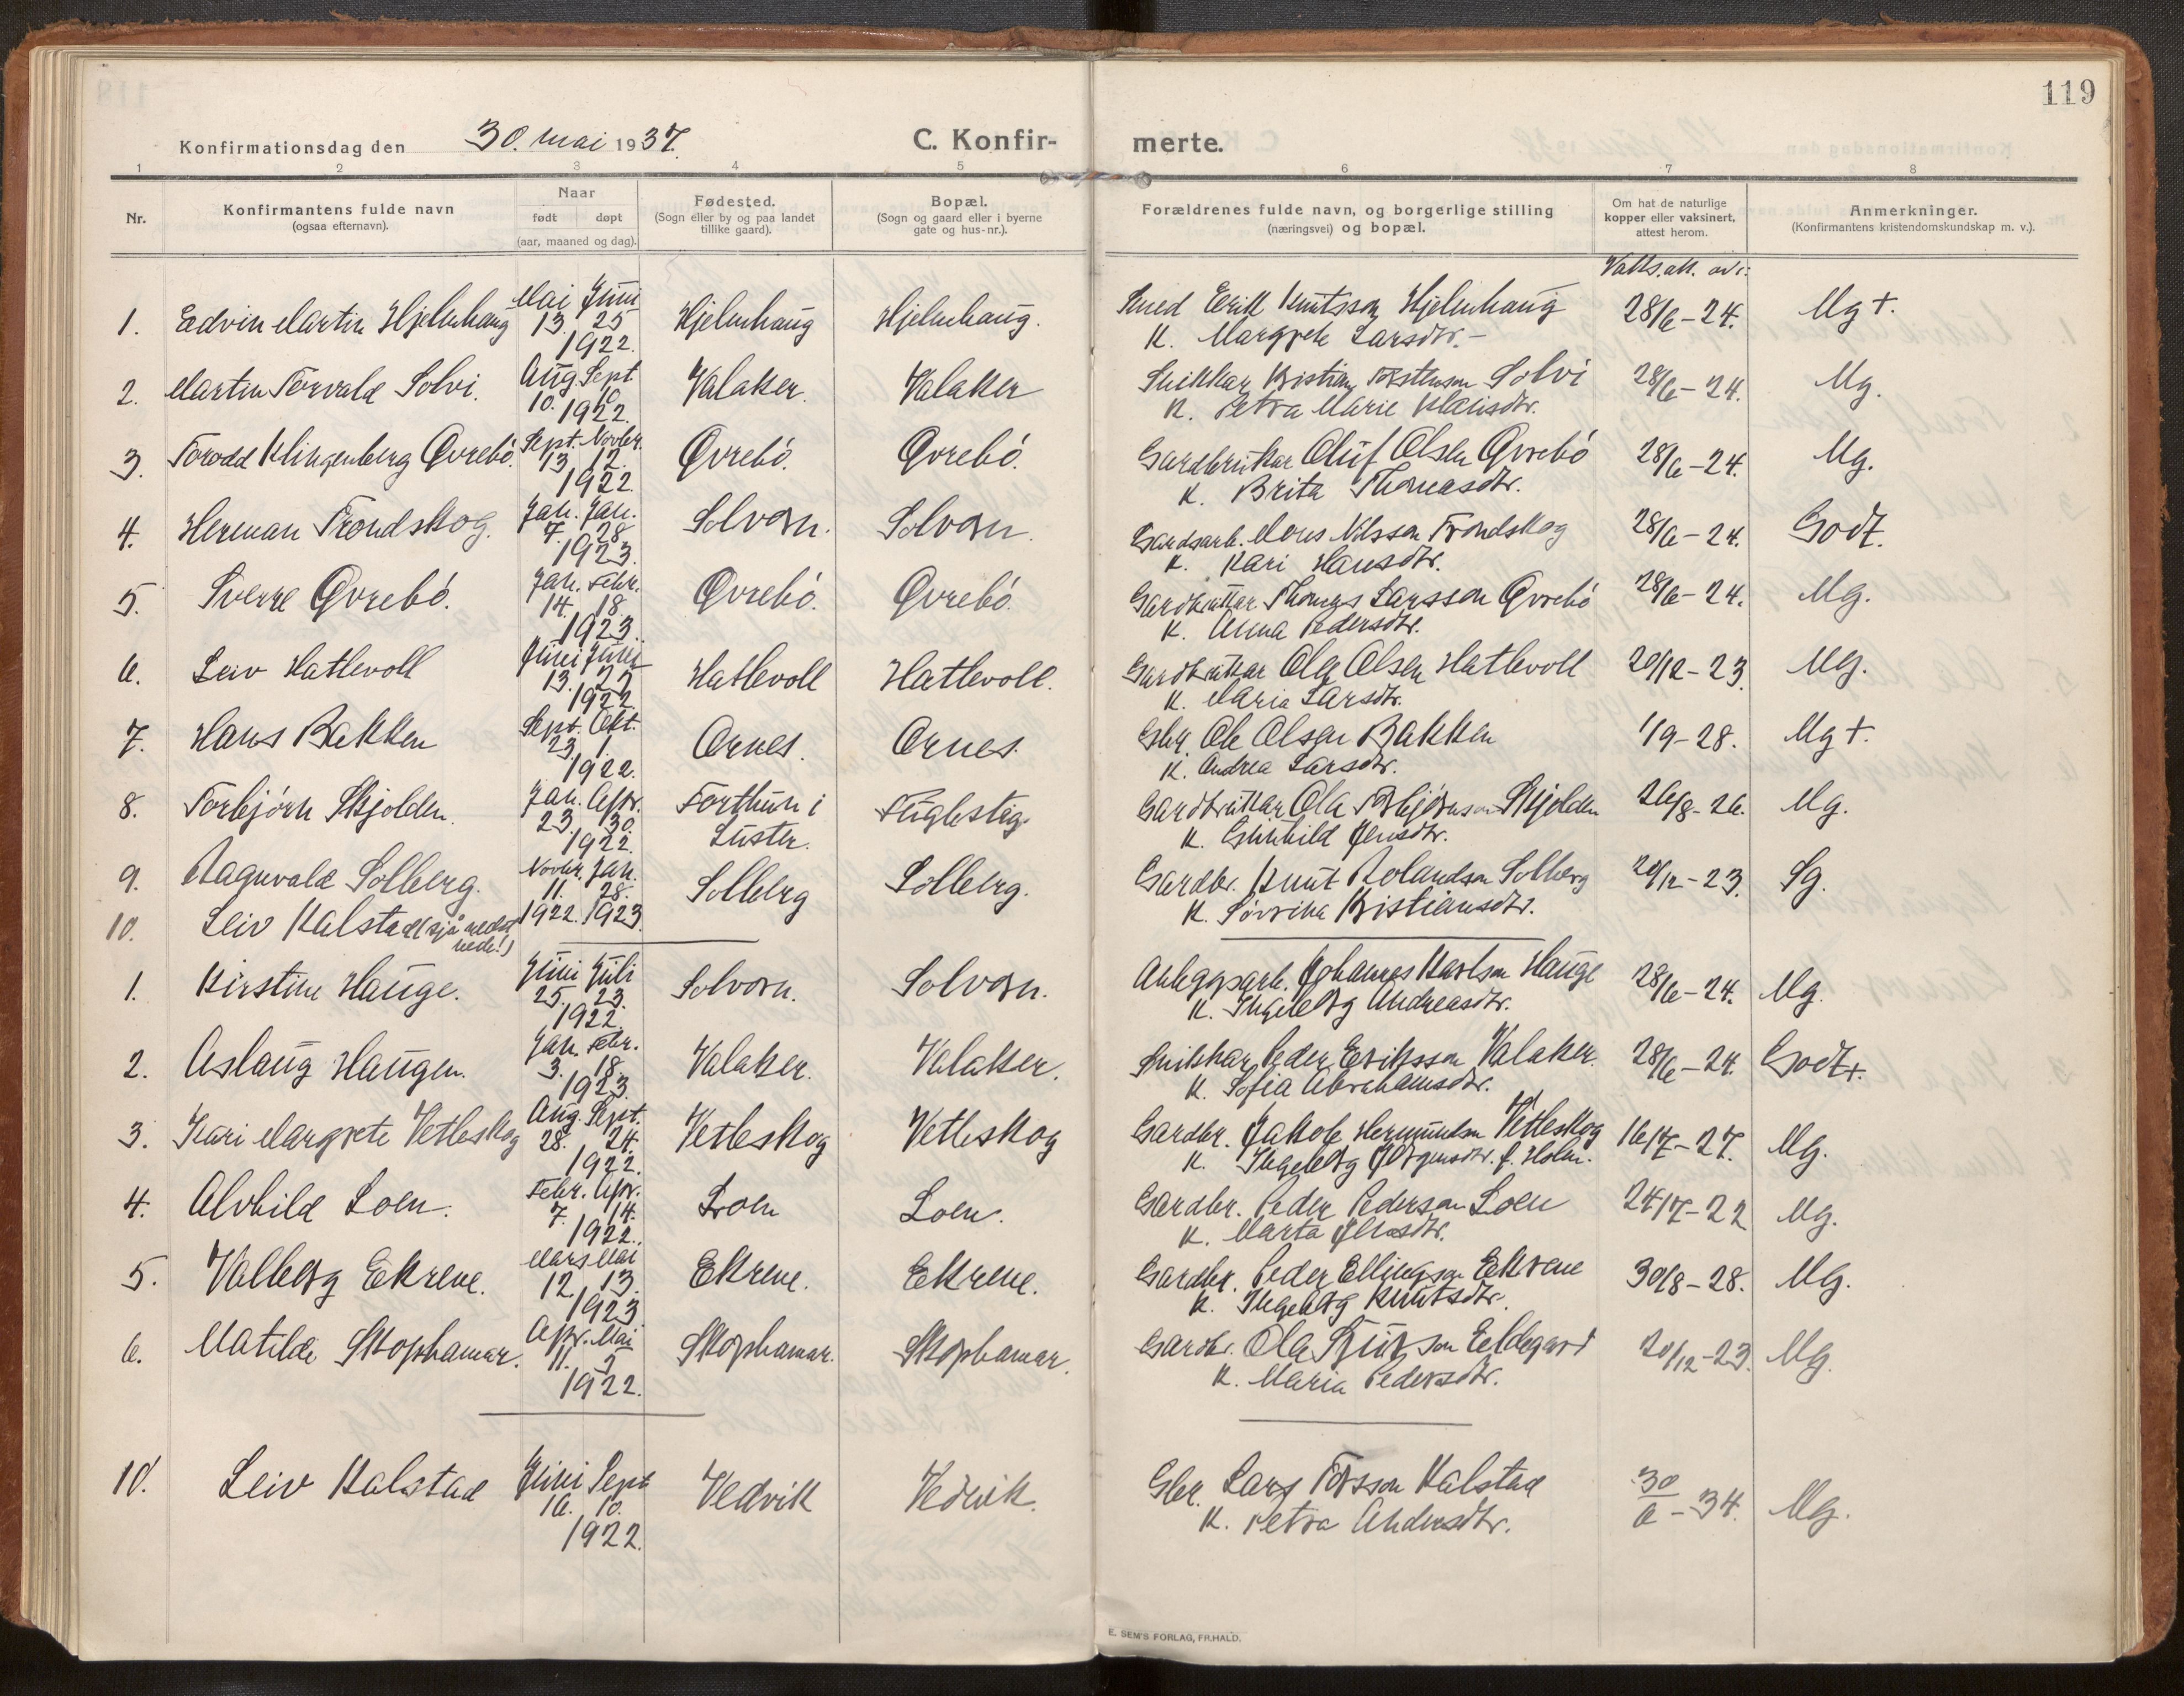 119
Konfirmationsdag den 30. mai 1937.
C. Konfirmerte.
1 2 3 4 5 6 7 8
Nr.
Konfirmantens fulde navn
(ogsaa efternavn).
Naar
født døpt
(aar, maaned og dag).
Fødested.
(Sogn eller by og paa landet
tillike gaard).
Bopæl.
(Sogn og gaard eller i byerne
gate og hus-nr.).
Forældrenes fulde navn, og borgerlige stilling
(næringsvei) og bopæl.
Om hat de naturlige
kopper eller vaksinert,
attest herom.
Anmerkninger.
(Konfirmantens kristendomskundskap m. v.).
Vaks. att. av:
Mai Juni
1. Edvin Martin Hjelmhaug 13. 25 Hjelmhaug Hjelmhaug. Smed Erik Knutsson Hjelmhaug 28/6-24. Mg+.
1922. K. Margrete Larsdtr. -
Aug. Sept
2. Martin Torvald Solvi. 10. 10 Valaker. Valaker Snikkar Kristian Torstenson Solvi 28/6-24. Mg.
1922. K. Petra Marie
Sept. Novbr.
3. Torodd Klingenberg Øvrebö. 13 12. Øvrebö. Øvrebö. Gardbrukar Oluf Olsen Øvrebö 28/6-24. Mg.
1922. K. Brita Thomasdtr.
Jan. Jan.
4. Herman Trondskog. 7. 28. Solvorn. Solvorn. Gardsarb. Mons Nilsson Trondskog 28/6-24. Godt.
1923. K. Kari Hansdtr.
Jan. Febr.
5. Sverre Øvrebö. 14. 18 Øvrebö. Øvrebö. Gardbrukar Thomas Larsson Øvrebö 28/6-24. Mg.
1923. K. Anna Pedersdtr.
Juni Juni
6. Leiv Hatlevoll 13. 25 Hatlevoll Hatlevoll. Gardbrukar Ole Olsen Hatlevoll 20/12-23. Mg.
1922. K. Maria Larsdtr.
Sept. Okt.
7. Hans Bakken 23. 1. Ornes. Ornes. Gbr. Ole Olsen Bakken 1/9-28. Mg+.
1922. K. Andrea Larsdtr.
Jan. Apr.
8. Torbjörn Skjolden. 23. 30. Forthun i Fuglesteg. Gardbrukar Ola Torbjörnson Skjolden 26/8-26. Mg.
1922. Luster. K. Gunhild Jensdtr.
Novbr. Jan.
9. Ragnvald Solberg. 11. 28. Solberg Solberg. Gardbr. Knut Rolandson Solberg 20/12-23. Sg.
1922. 1923. K. Sövrina Kristiansdtr.
10. Leiv Kalstad (sjå nedst
nede!)
Juni Juli
1. Kirstine Hauge. 25. 23. Solvorn. Solvorn. Anleggsarb. Johannes Karlson Hauge 28/6-24. Mg.
1922. K. Ingeborg Andreasdtr.
Jan. Febr.
2. Aslaug Haugen. 3. 18. Valaker. Valaker. Snikkar Peder Eriksson Valaker. 28/6-24. Godt+.
1923. K. Sofia Abrahamsdtr.
Aug. Sept.
3. Kari Margrete Vetleskog 28. 24. Vetleskog Vetleskog Gardbr. Jakob Hermundson Vetleskog 16/7-27. Mg.
1922. K. Ingeborg Jörgensdtr. f. Holm.
Febr. Apr.
4. Alvhild Loen. 7. 14. Loen Loen. Gardbr. Peder Pederson Loen 24/7-22 Mg.
1922. K. Marta Jensdtr.
Mars Mai
5. Valborg Ekrene. 12. 13. Ekrene. Ekrene. Gardbr. Peder Ellingson Ekrene 30/8-28. Mg.
1923 K. Ingeborg Knutsdtr.
Apr. Mai
6. Matilde Skophamar. 11. 5 Skophamar. Skophamar. Gardbr. Ola Sjurson Eeldegard 20/12-23. Mg.
1922. K. Maria Pedersdtr.
Juni Sept
10. Leiv Kalstad 16. 10. Vedvik Vedvik. Gbr. Lars Torsson Kalstad 30/6-34. Mg.
1922. K. Petra Andersdtr.
E. SEM'S FORLAG, FR.HALD.